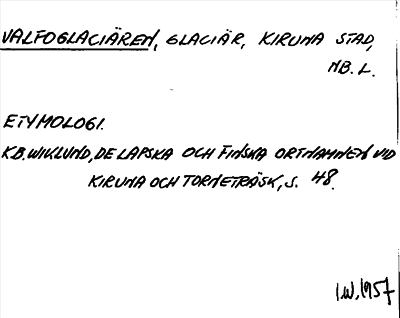 VALFOGLACIÄREN, GLACIÄR, KIRUNA STAD,
NB. L.
ETYMOLOGI.
K.B. WIKLUND, DE LAPSKA OCH FINSKA ORTNAMNEN VID
KIRUNA OCH TORNETRÄSK, S. 48.
I.W. 1957